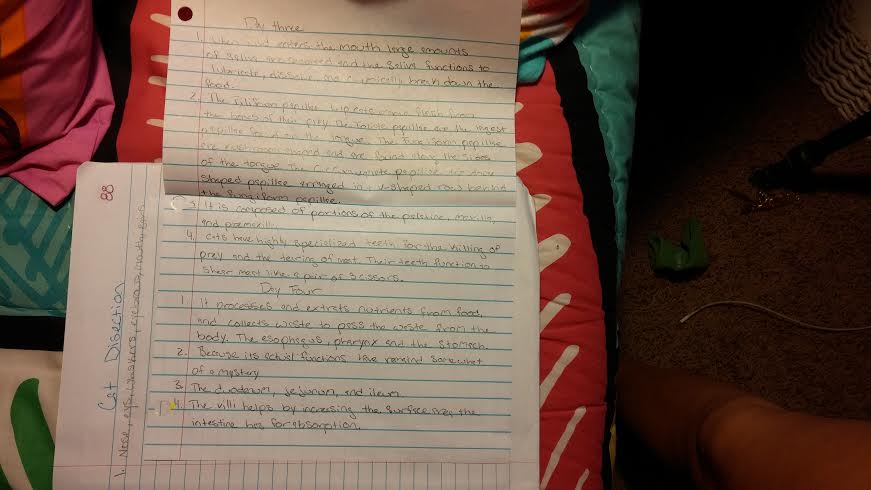 Day three
1. When food enters the mouth large amounts
of saliva are secreted and the saliva functions to
lubricate, dissolve and chemically break down the
food.
2. The Filiform papillae help cats remove flesh from
the bones of their prey. The foliate papillae are the largest
papillae found on the tongue. The fungiform papillae
are mushroom shaped and are found along the sides
of the tongue. The circumvallate papillae are
shaped papillae arranged in v-shaped row behind
the fungiform papillae.
3. It is composed of portions of the palatine, maxilla,
and premaxilla
4. Cats have highly specialized teeth for the killing of
prey and the tearing of meat. Their teeth function to
shear meat like a pair of scissors.
Day Four
1. It processes and extrats nutrients from food
and collects waste to pass the waste from the
body. The esophagus, pharynx and the stomach.
2. Because its actual functions have remind somewhat
of a mystery
3. The duodenum, jejunum, and ileum
4. The villi helps by increasing the surface area the
intestine has for absorption.
88
Cat Disection
1. Nose, eyes, whiskers,